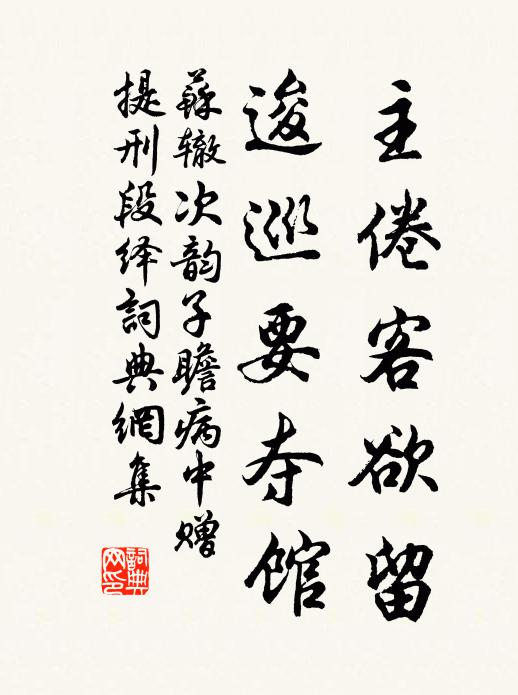 主倦客欲留
逡巡要夺馆
蘇辙次韵子瞻病中赠
提刑段绎詞典網集
詞典
网印